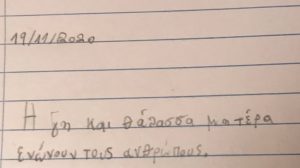 19/11/2020
Η γη και θάλασσα μα τέρα
ενώνουν τους ανθρώπους.